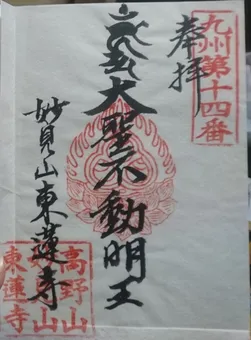 九州第十四番
奉拝
大聖不動明王
妙見山東蓮寺
高野山
東蓮寺